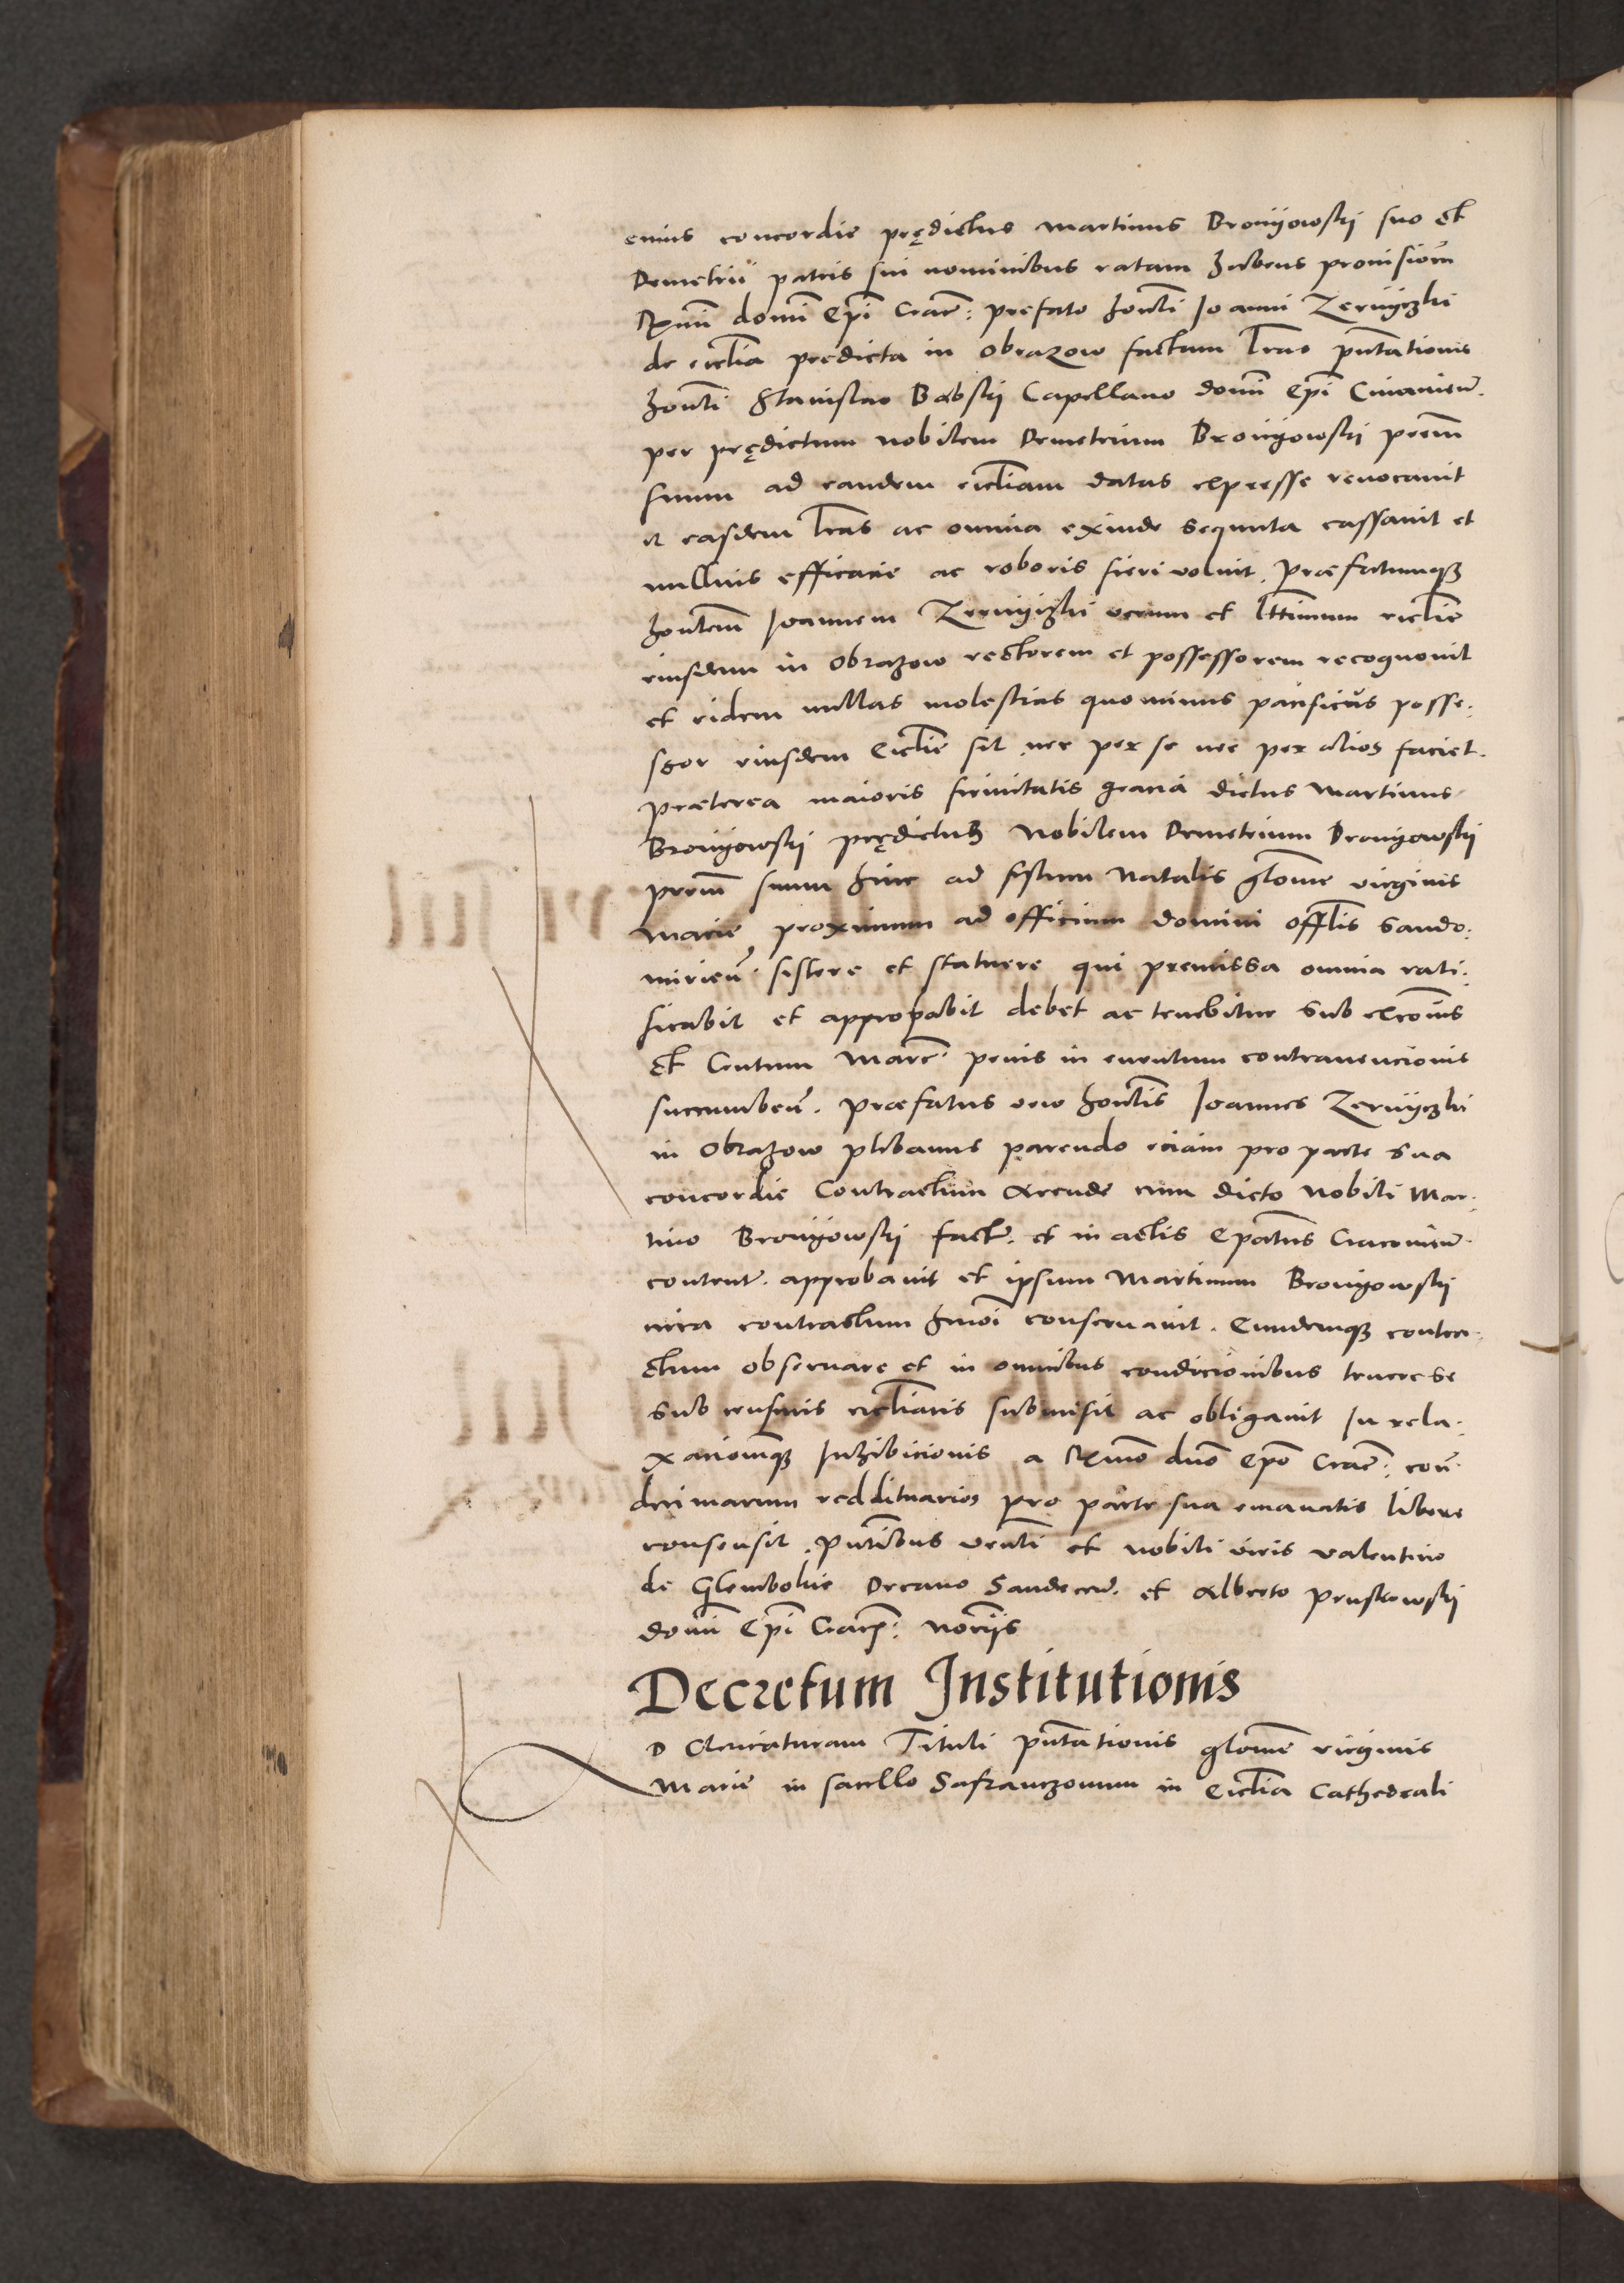 cuius concordie prędictus Martinus Bronyowskij suo et
Demetrii patris sui nominibus ratam habens prouisiom̄
Rx̄mi domī Ep̄i Crac̄: prefato hon̄li Joanni Zernyczki
de eccl̄ia predicta in Obrazow factam l̄ras pn̄tationis
hon̄li Stanislao Babskij Capellano domī Ep̄i Cuiauien̄.
per prędictum nobilem Demetrium Bronyowskij pr̄em
suum ad eandem eccl̄iam datas expresse reuocauit
et easdem l̄ras ac omnia exinde sequuta cassauit et
nullius efficacie ac roboris fieri voluit. Præfatumqʒ
hon̄lem Joannem Zernyczki verum et lt̄timum eccl̄ie
eiusdem in Obrazow rectorem et possessorem recognouit
et eidem nullas molestias quominus pacificus posse:
ssor eiusdem Eccl̄ie sit nec per se nec per alios faciet.
Præterea maioris firmitatis gracia dictus Martinus
Bronyowskij prędictuʒ Nobilem Demetrium Bronyowskij
pr̄em suum hinc ad festum Natalis gl̄ome virginis
Marie proximum ad officium domini offl̄is Sando:
mirien̄. sistere et statuere qui premissa omnia rati:
ficabit et appropabit debet ac tenebitur sub exc̄ois
et Centum Marc̄. penis in euentum contrauencionis
succumben̄. Præfatus vero hon̄lis Joannes Zernyczki
in Obrazow pl̄ibanus parendo eciam pro parte sua
concordie Contractum Arende cum dicto Nobili Mar:
tino Bronyowskij factū. et in actis Ep̄atus Cracouien̄.
contentū. approbauit et ipsum Martinum Bronyowskij
circa contractum hm̄oi conseruauit. Eundemqʒ contra:
ctum obseruare et in omnibus condicionibus tenere se
sub censuris eccl̄iaticis submisit ac obligauit In rela:
xacionemqʒ Inhibicionis a Rx̄mo dn̄o Ep̄o Crac̄: con̄
decimarum reddituarios pro parte sua emanatis libere
consensit. Pn̄tibus ven̄li et nobili viris Valentino
de Glembokie Decano Sandecen̄. et Alberto Pruskowskij
domī Ep̄i Crac̄: No͞rijs
Decretum Institutionis
D Clericaturam Tituli pn̄tationis gl̄ome virginis
Marie in sacello Safranczonum in Eccl̄ia Cathedrali